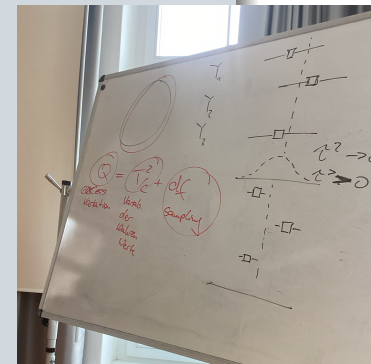 Y₁
Y₂
Y₃
τ² →
τ² > 0
Q = τ²/c + df
excess
Variation
Varianz
der
wahren
Werte
sampling